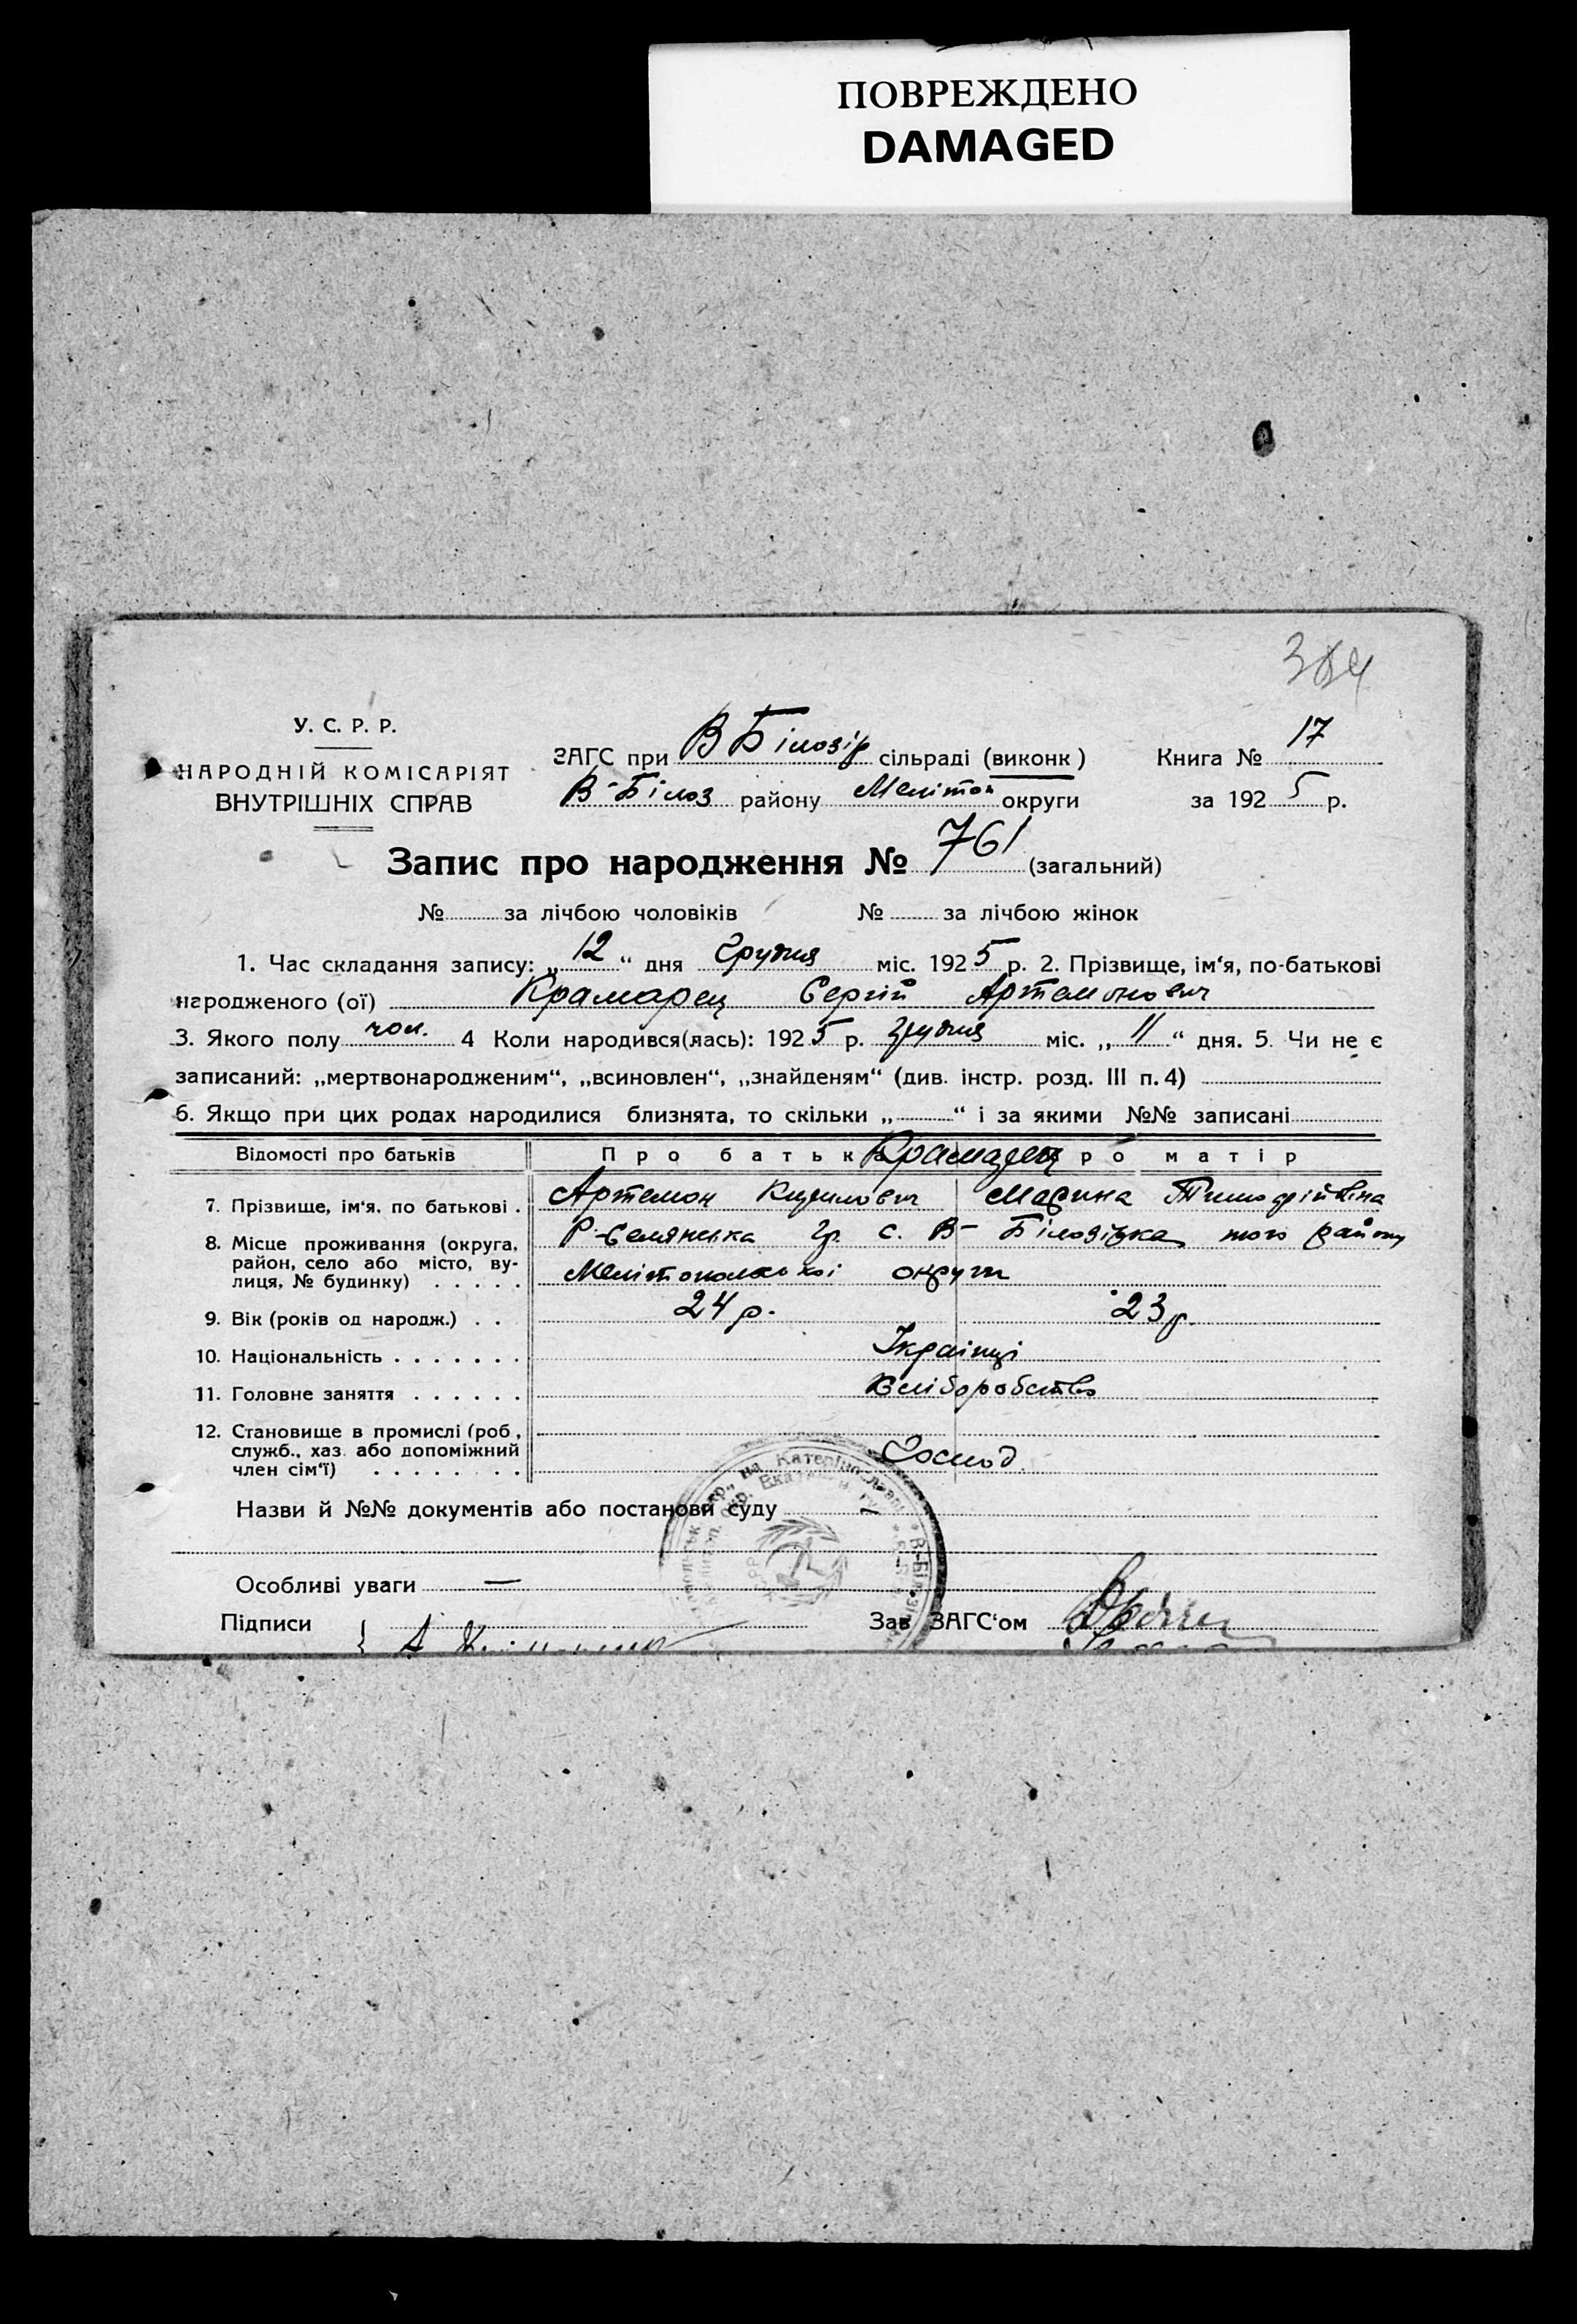 ПОВРЕЖДЕНО
DAMAGED
384
У. С. Р. Р.
НАРОДНІЙ КОМІСАРІЯТ
ВНУТРІШНІХ СПРАВ
ЗАГС при В Білозір сільраді (виконк)
Книга № 17
В-Білоз району Меліт округи
за 1925 р.
Запис про народження № 761 (загальний)
№ за лічбою чоловіків № за лічбою жінок
1. Час складання запису: „12“ дня Грудня міс. 1925 р. 2. Прізвище, ім‘я, по-батькові
народженого (ої) Крамарец Сергій Артемонович
3. Якого полу чол. 4 Коли народився(лась): 1925 р. грудня міс. „11“ дня. 5. Чи не є
записаний: „мертвонародженим“, „всиновлен“, „знайденям“ (див. інстр. розд. III п. 4)
6. Якщо при цих родах народилися близнята, то скільки „ “ і за якими №№ записані
Відомості про батьків
Про батька Крамарец Про матір
7. Прізвище, ім‘я, по батькові . Артемон Кирилович Марина Тимофійвна
8. Місце проживання (округа, район, село або місто, вулиця, № будинку) . . . . .
Р-Селянська гр. с. В- Білозірка того району
Мелітопольскої округи
9. Вік (років од народж.) . . 24 р. 23 р.
10. Національність . . . . . . . Українці
11. Головне заняття . . . . . . Хліборобство
12. Становище в промислі (роб, служб., хаз. або допоміжний член сім‘ї) . . . . . . . .
Господ.
Назви й №№ документів або постанови суду –
Особливі уваги —
Підписи
Зав ЗАГС‘ом